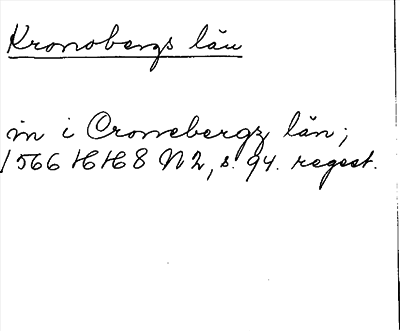 Kronobergs län
in i Cronebergz län;
1566 HH 8 N2, s. 94. regest.